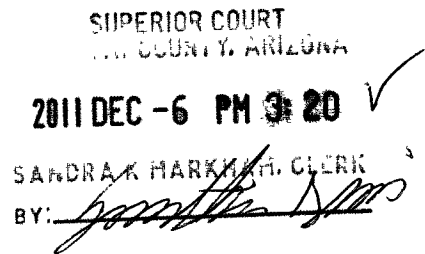 SUPERIOR COURT
COUNTY, ARIZONA
2011 DEC -6 PM 3:20
SANDRA K MARKHAM, CLERK
BY: